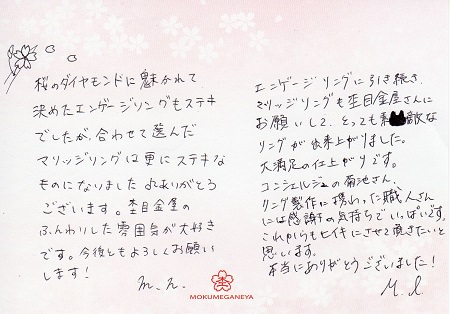 桜のダイヤモンドに魅かれて
決めたエンゲージリングもステキ
でしたが、合わせて選んだ
マリッジリングは更にステキな
ものになりました♪ありがとう
ございます。杢目金屋の
ふんわりした雰囲気が大好き
です。今後ともよろしくお願い
します！
m.n.
エンゲージリングに引き続き、
マリッジリングも杢目金屋さんに
お願いして、とっても素敵な
リングが出来上がりました。
大満足の仕上がりです。
コンシェルジュの菊池さん、
リング製作に携わった職人さん
には感謝の気持ちでいっぱいです。
これからもヒイキにさせて頂きたいと
思います。
本当にありがとうございました！
MOKUMEGANEYA